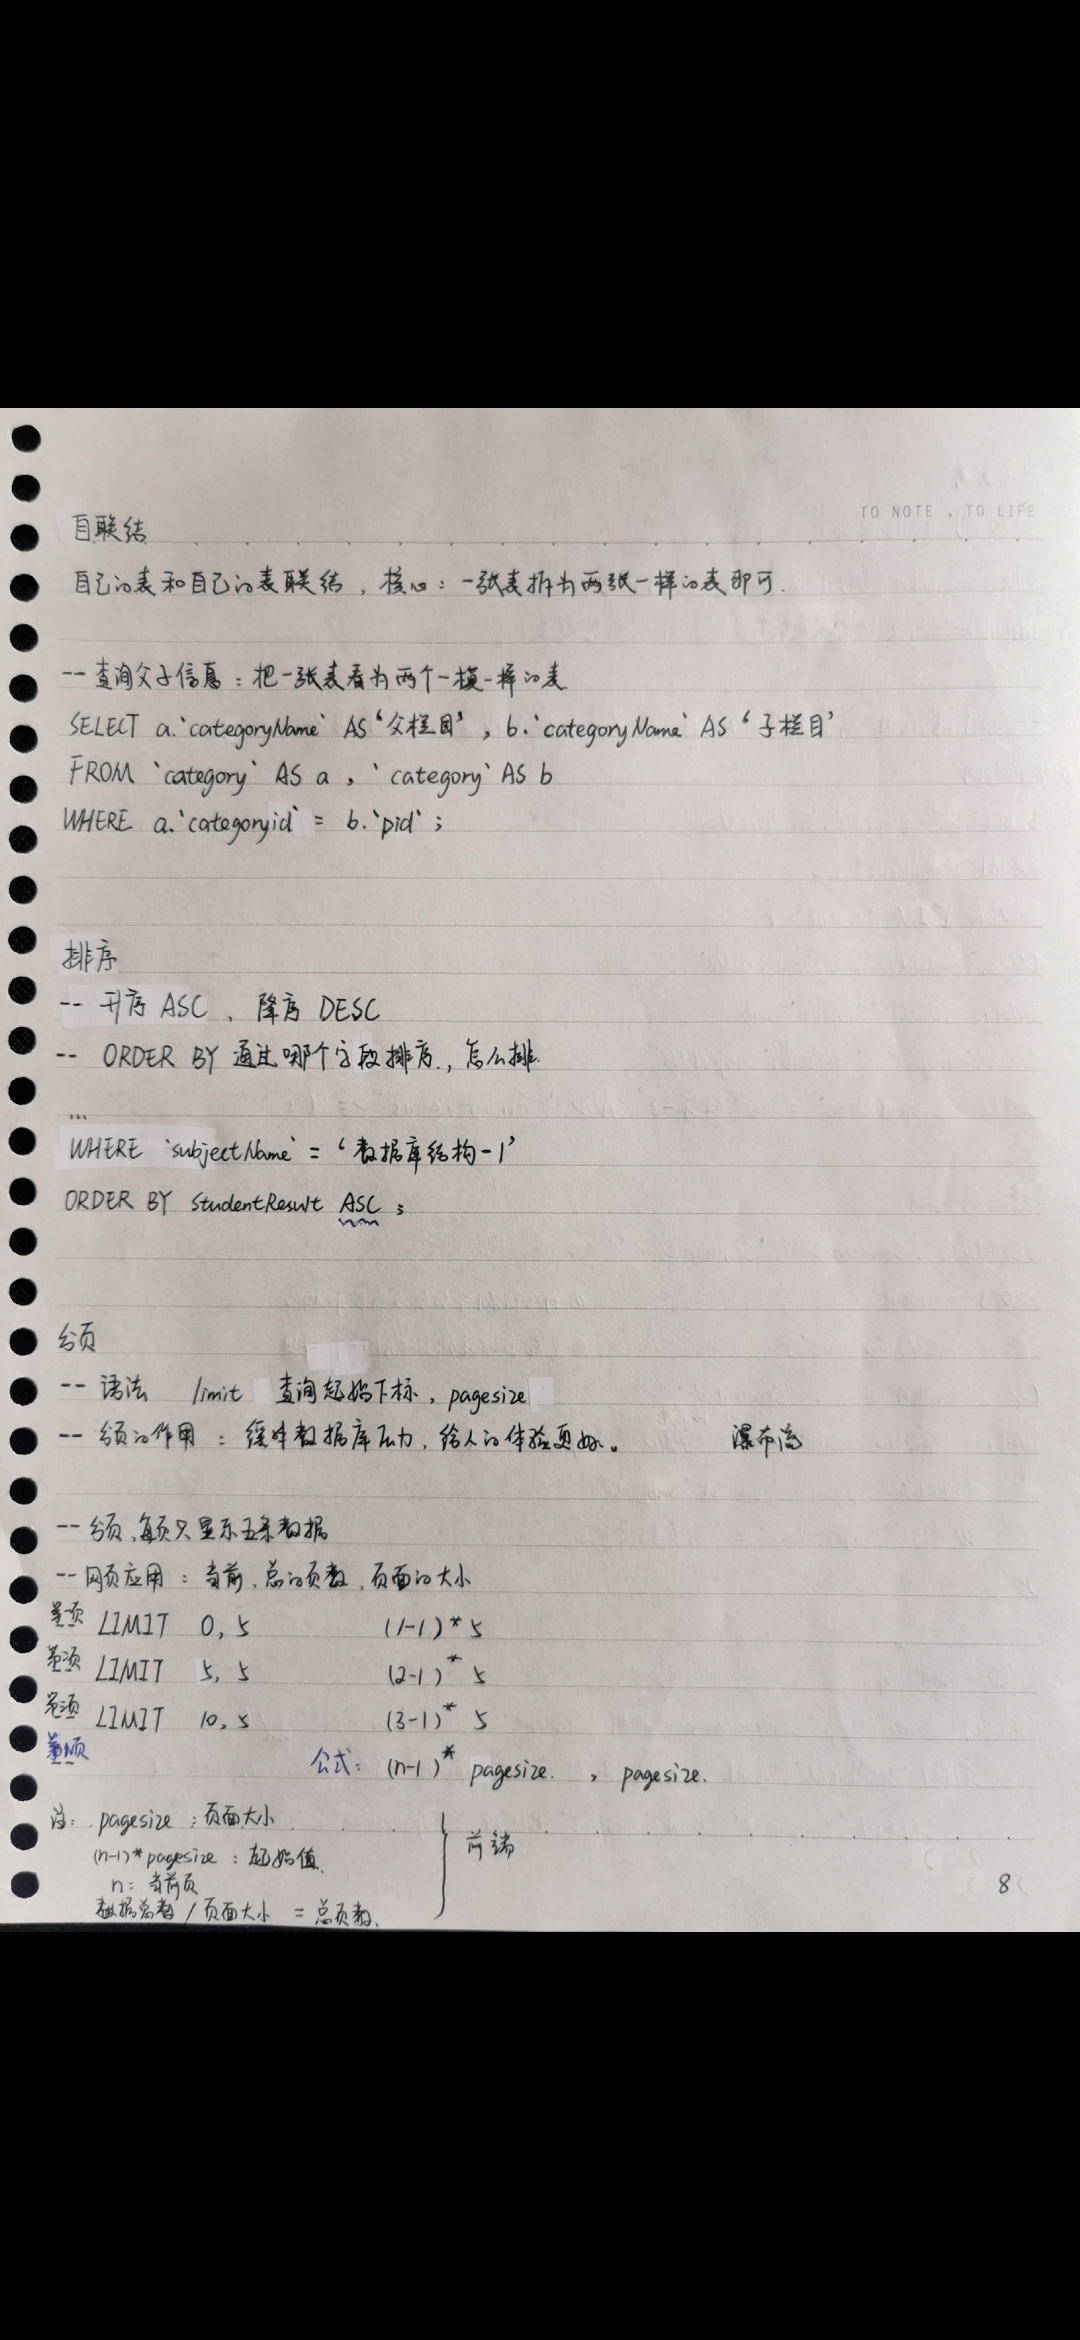 TO NOTE , TO LIFE
自联结
自己的表和自己的表联结，核心：一张表拆为两张一样的表即可.
-- 查询父子信息：把一张表看为两个一模一样的表
SELECT a.`categoryName` AS '父栏目' , b.`categoryName` AS '子栏目'
FROM `category` AS a , `category` AS b
WHERE a.`categoryid` = b.`pid` ;
排序
-- 升序 ASC 、降序 DESC
-- ORDER BY 通过哪个字段排序.，怎么排.
...
WHERE `subjectName` = '数据库结构-1'
ORDER BY StudentResult ASC ;
分页
-- 语法 limit 查询起始下标，pagesize
-- 分页的作用：缓冲数据库压力，给人的体验更好。 瀑布流
-- 分页、每页只显示五条数据
-- 网页应用：当前、总的页数、页面的大小
LIMIT 0, 5 (1-1)* 5
LIMIT 5, 5 (2-1)* 5
LIMIT 10, 5 (3-1)* 5
公式: (n-1)* pagesize. , pagesize.
注: pagesize : 页面大小
(n-1)*pagesize : 起始值. 前端
n: 当前页
数据总数 / 页面大小 = 总页数.
8